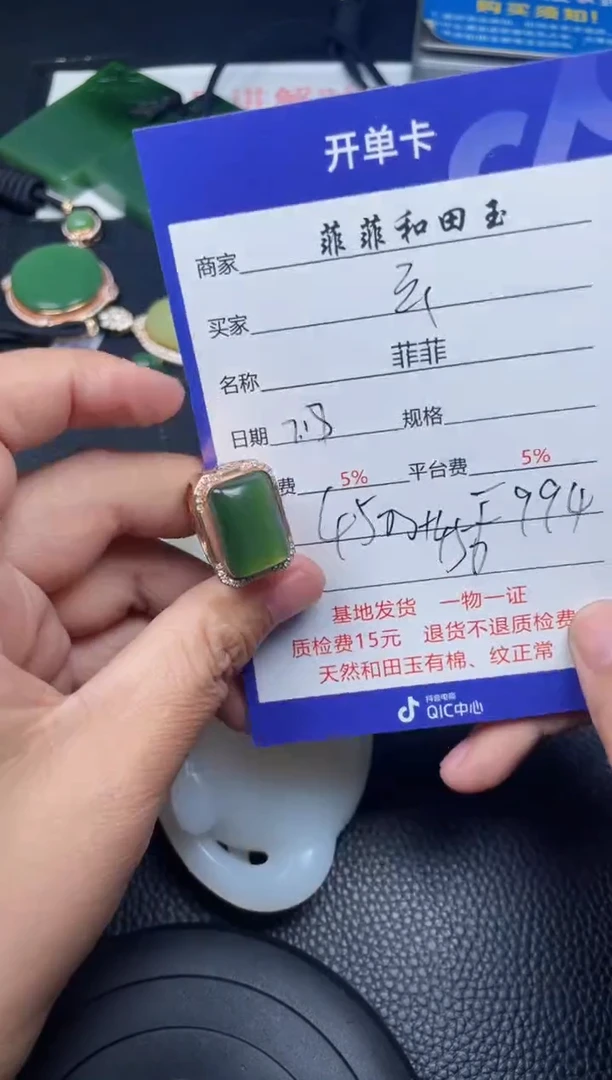 购买须知!
开单卡
商家 菲菲和田玉
买家
名称 菲菲
日期 7.18 规格
费 5% 平台费 5%
994
基地发货 一物一证
质检费15元 退货不退质检费
天然和田玉有棉、纹正常
抖音电商
QIC中心